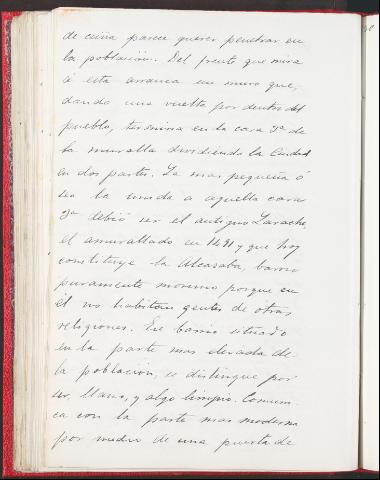 de cuña parece querer penetrar en
la población. Del frente que mira
á esta arranca un muro que,
dando una vuelta por dentro del
pueblo, termina en la cara 3ª de
la muralla dividiendo la Ciudad
en dos partes. La mas pequeña ó
sea la unida a aquella cara
3ª debió ser el antiguo Larache,
el amurallado en 1491 y que hoy
constituye la Alcasaba, barrio
puramente moruno porque en
él no habitan gentes de otras
religiones. Ese barrio situado
en la parte mas elevada de
la población, se distingue por
ser, llano, y algo limpio. Comuni-
ca con la parte mas moderna
por medio de una puerta de